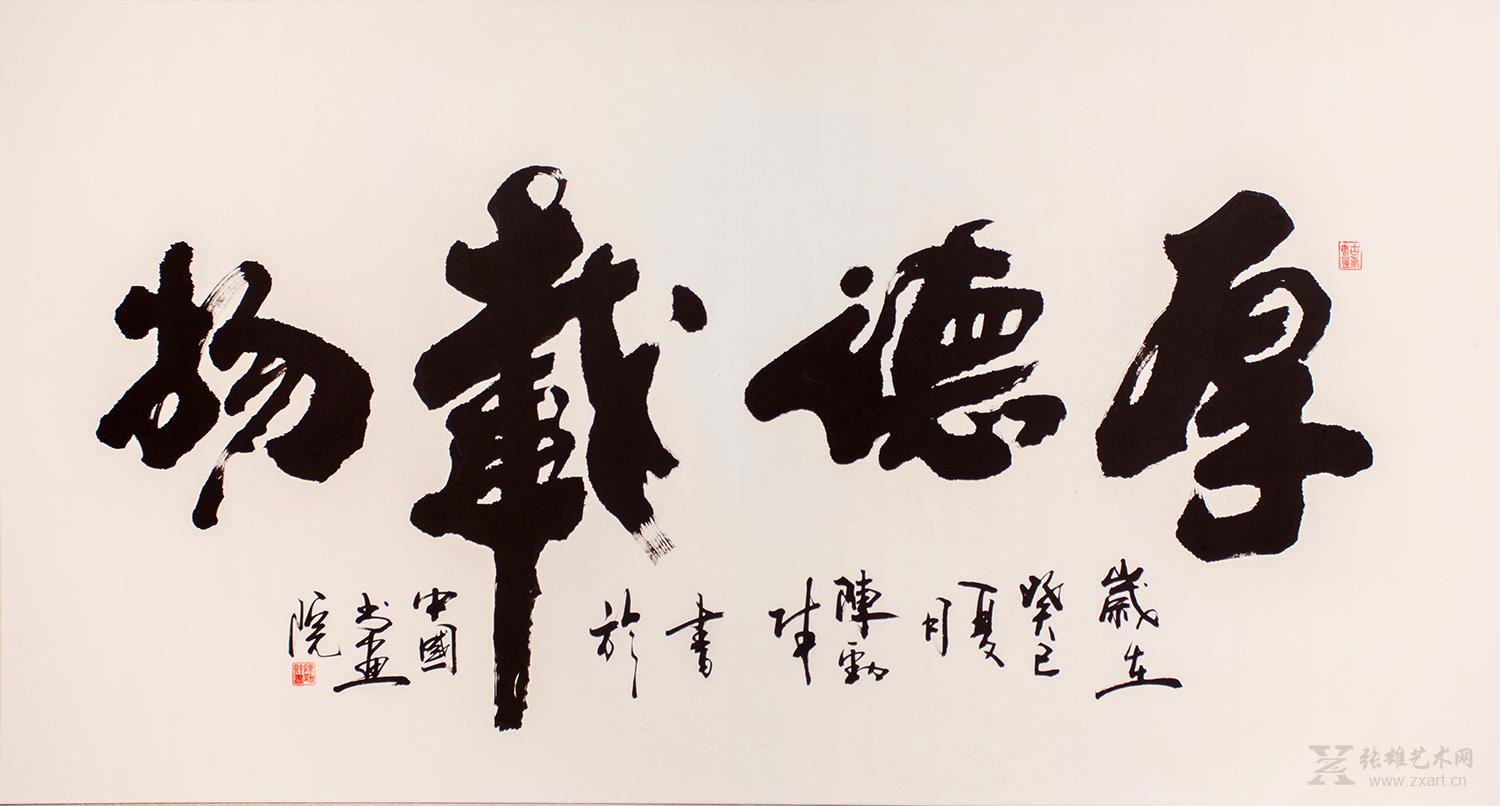 厚德載物
歲在
癸巳
夏
月
陳勁
書
於
中國
書畫
院
张雄艺术网
www.zxart.cn